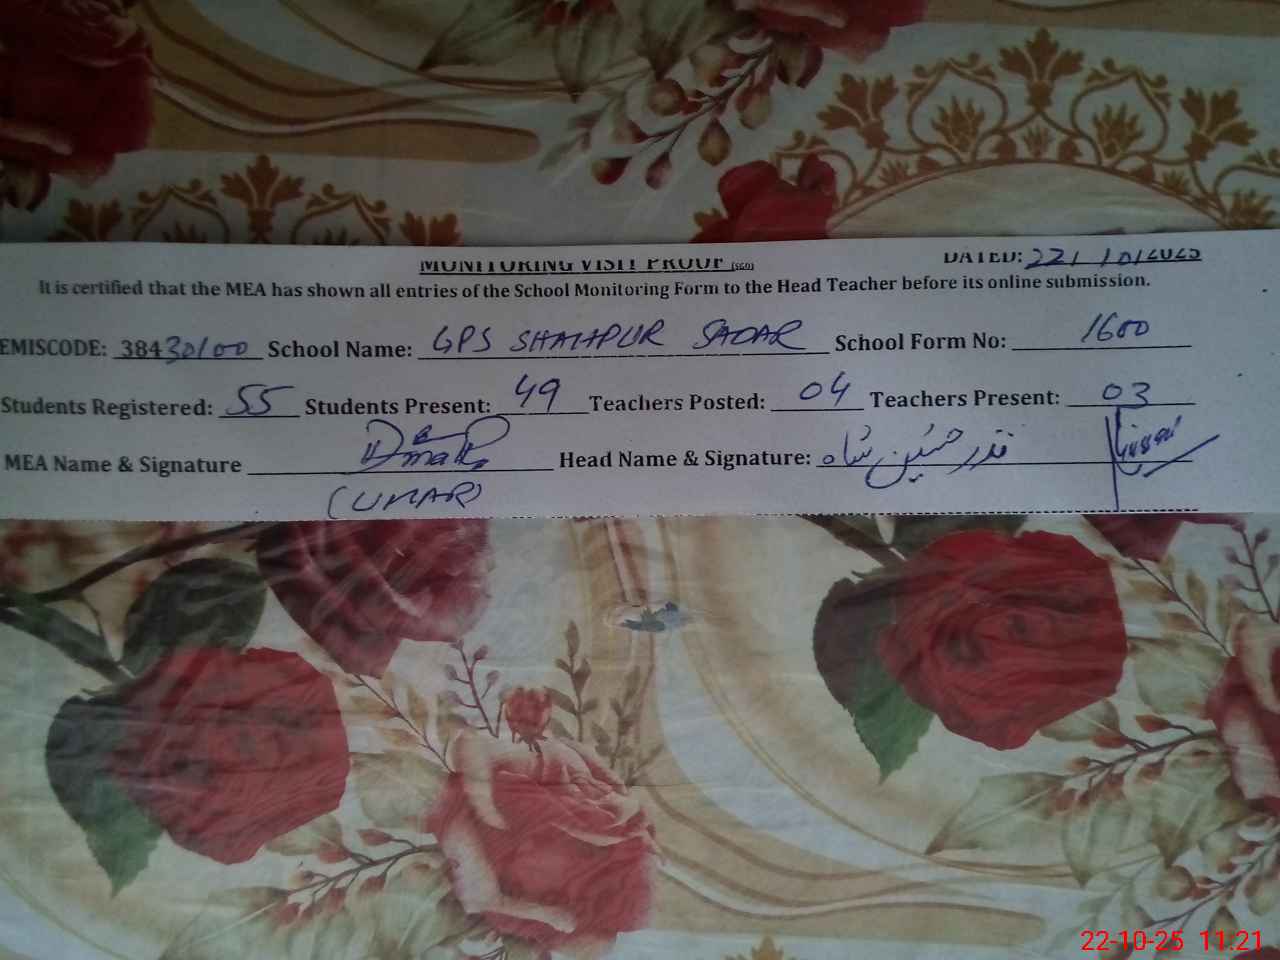 MONITORING VISIT PROOF (SGD) DATED: 22/10/2025
It is certified that the MEA has shown all entries of the School Monitoring Form to the Head Teacher before its online submission.
EMISCODE: 38430100 School Name: GPS SHAHPUR SADAR School Form No: 1600
Students Registered: 55 Students Present: 49 Teachers Posted: 04 Teachers Present: 03
MEA Name & Signature Head Name & Signature: نذر حسین شاہ
(UMAR)
22-10-25 11:21